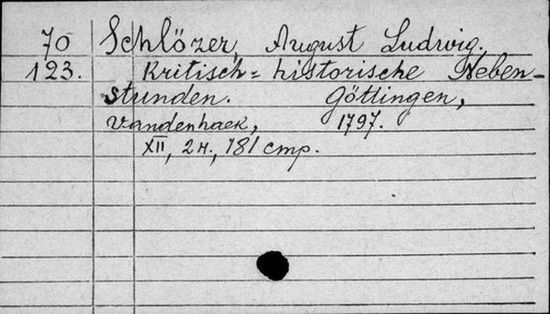 70 Schlözer, August Ludwig.
123. Kritisch=historische Neben-
stunden. Göttingen,
Vandenhaek, 1797.
XII, 2 н., 181 стр.